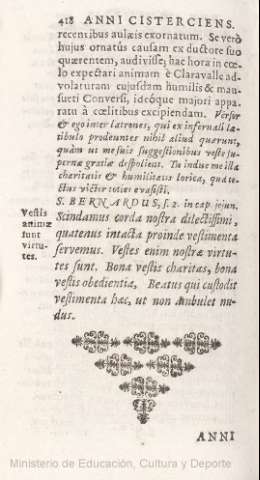 418 ANNI CISTERCIENS.
recentibus aulæis exornatum. Se verò
hujus ornatûs causam ex ductore suo
quærentem, audivisse; hac hora in cœ-
lo expectari animam è Claravalle ad-
volaturam cujusdam humilis & man-
sueti Conversi, ideóque majori appa-
ratu à cœlitibus excipiendam. Versor
& ego inter latrones, qui ex infernali la-
tibulo prodeuntes nihil aliud quærunt,
quàm ut me suis suggestionibus veste su-
pernæ gratiæ despolient. Tu indue me illâ
charitatis & humilitatis lorica, quâ te-
ctus victor toties evasisti.
S. BERNARDUS, s. 2. in cap. jejun.
Scindamus corda nostra dilectissimi,
quatenus intacta proinde vestimenta
servemus. Vestes enim nostræ virtu-
tes sunt. Bona vestis charitas, bona
vestis obedientia, Beatus qui custodit
vestimenta hæc, ut non ambulet nu-
dus.
Vestis
animæ
sunt
virtu-
tes.
ANNI
Ministerio de Educación, Cultura y Deporte